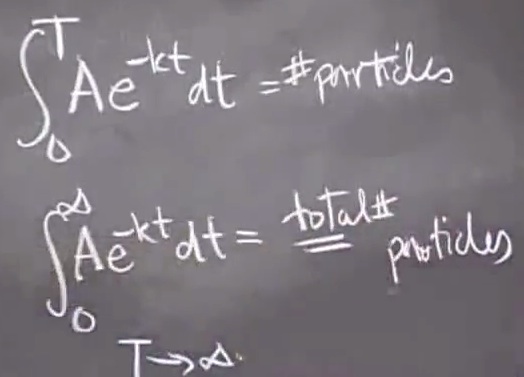 ∫₀ᵀ Ae^{-kt} dt = # particles
∫₀^∞ Ae^{-kt} dt = total # particles
T → ∞.